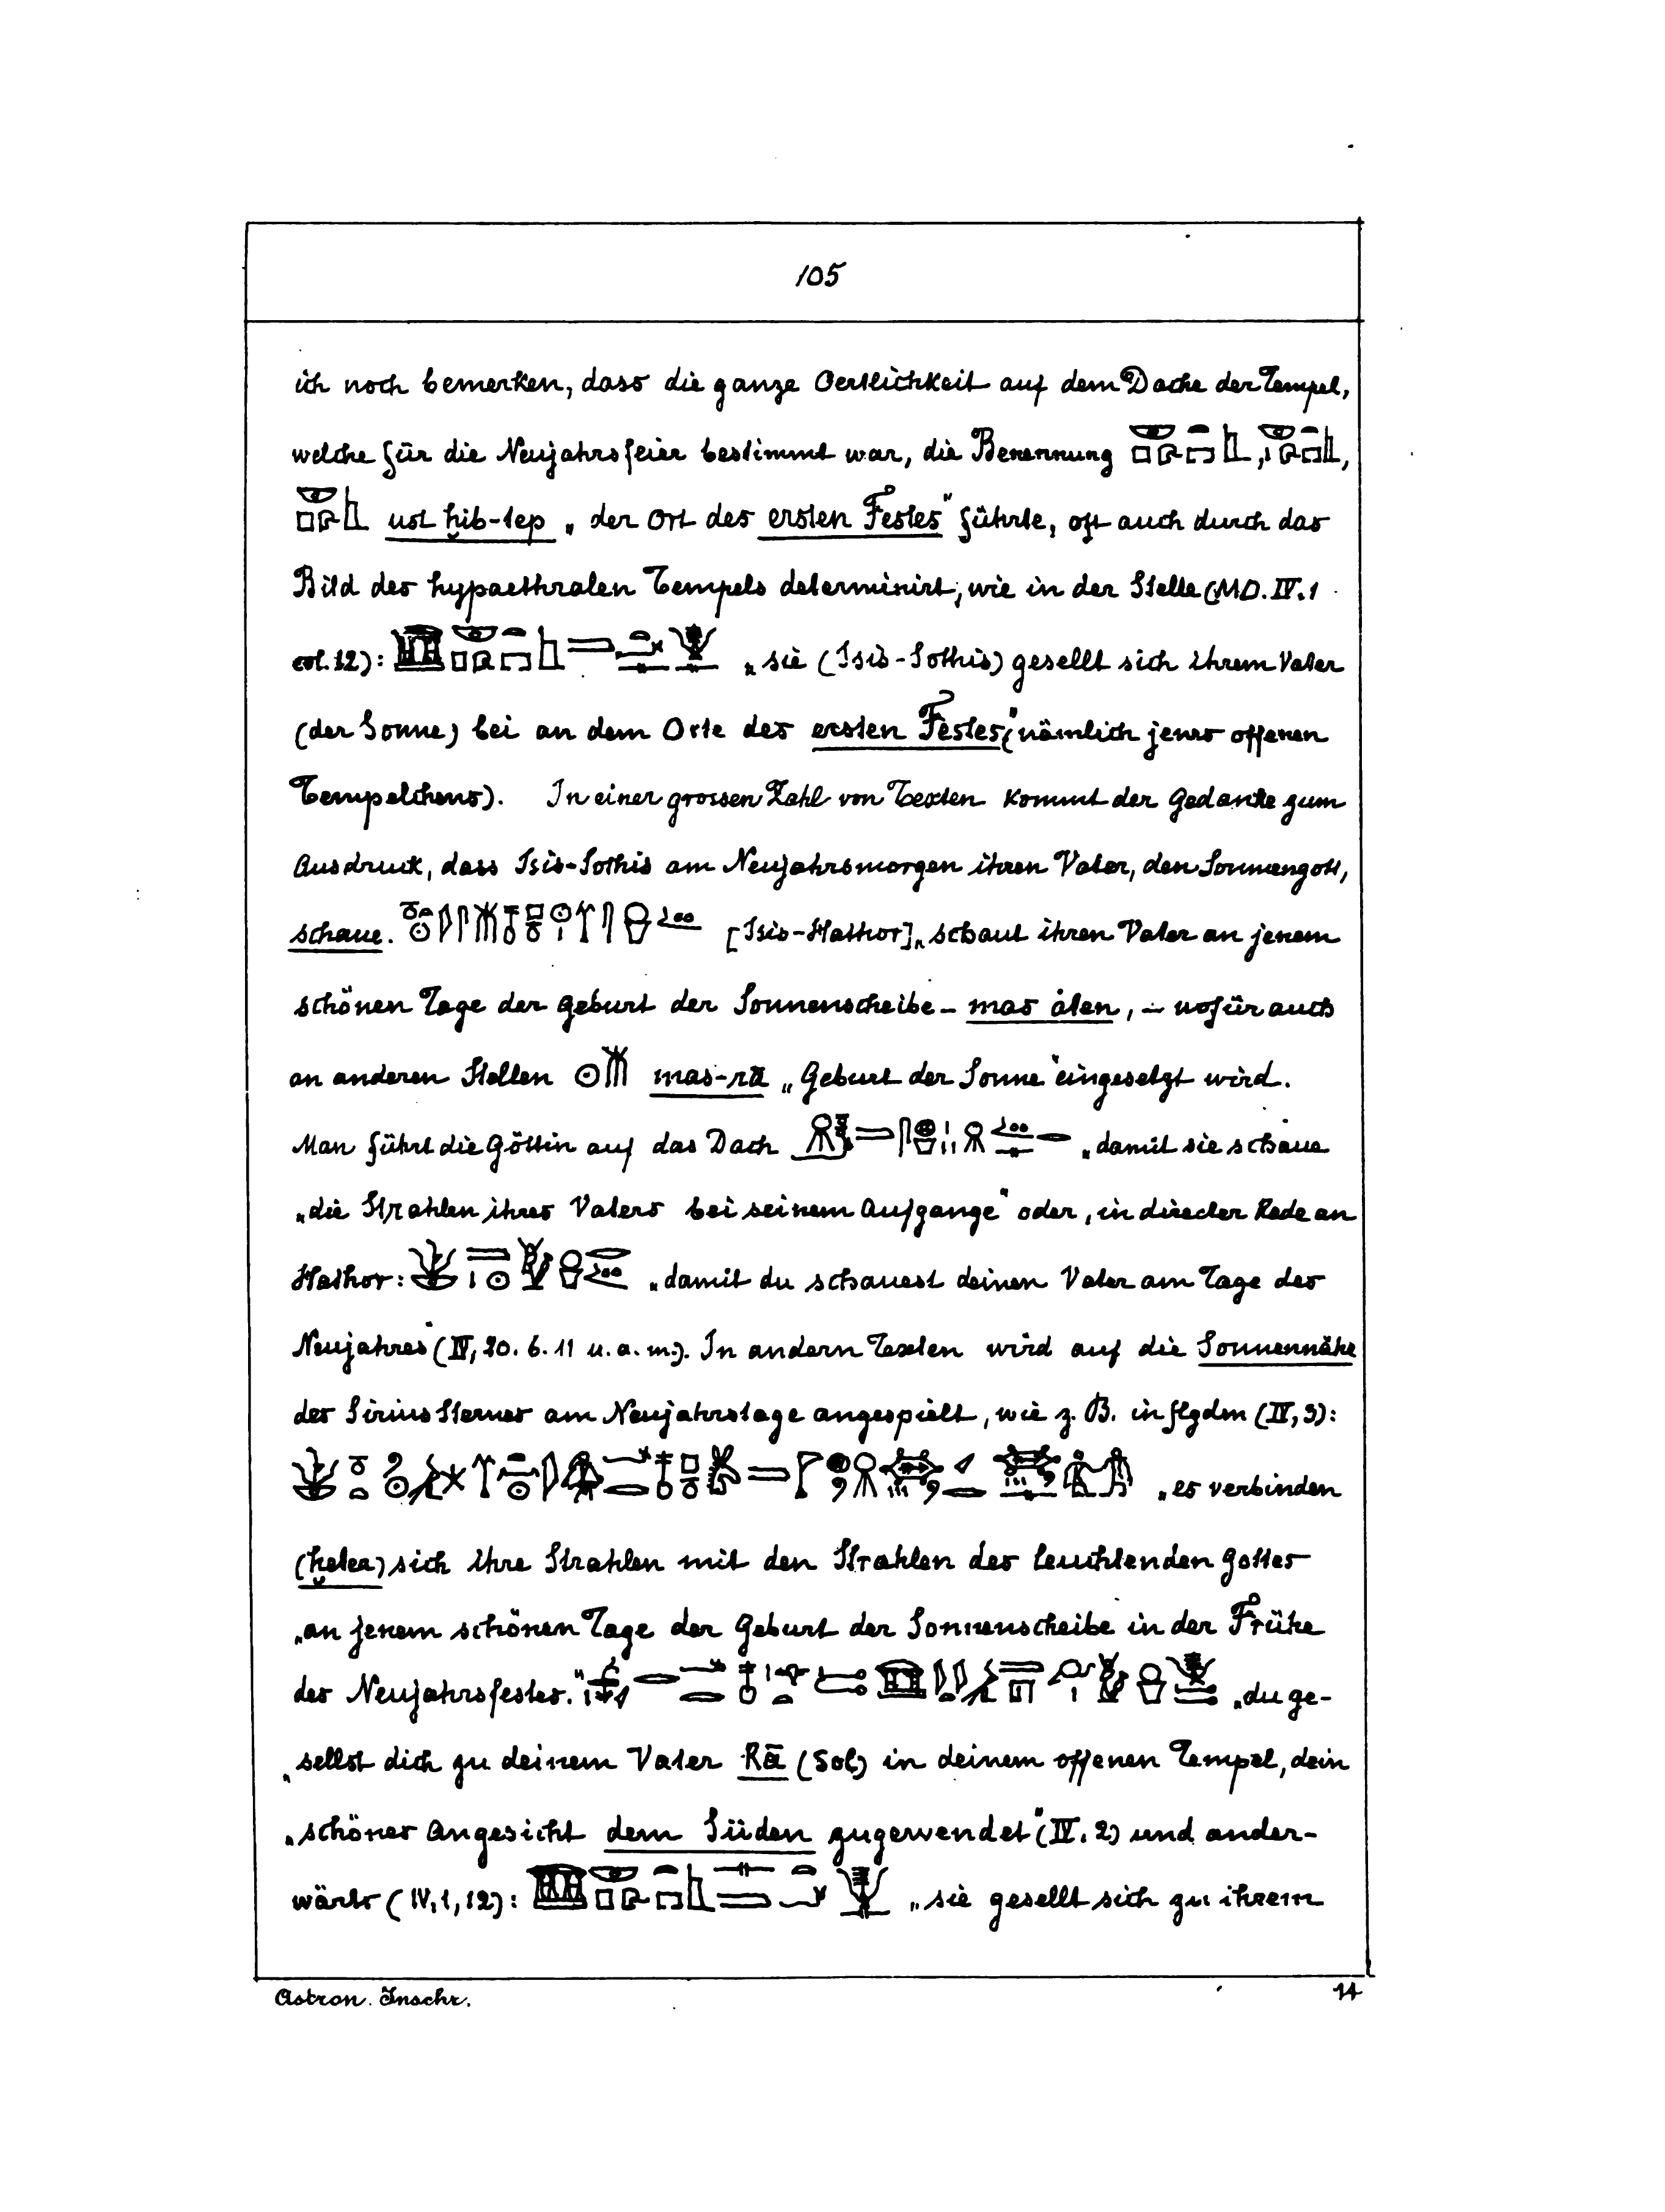 105
ich noch bemerken, dass die ganze Oertlichkeit auf dem Dache der Tempel,
welche für die Neujahrsfeier bestimmt war, die Benennung
ust ḥib-tep „der Ort des ersten Festes" führte, oft auch durch das
Bild des hypaethralen Tempels determinirt, wie in der Stelle (MD. IV. 1
col. 12): „sie (Isis-Sothis) gesellt sich ihrem Vater
(der Sonne) bei an dem Orte des ersten Festes" (nämlich jenes offenen
Tempelchens). In einer grossen Zahl von Texten kommt der Gedanke zum
Ausdruck, dass Isis-Sothis am Neujahrsmorgen ihren Vater, den Sonnengott,
schaue. [Isis-Hathor] „schaut ihren Vater an jenem
schönen Tage der Geburt der Sonnenscheibe – mas åten, – wofür auch
an anderen Stellen mas-rā „Geburt der Sonne" eingesetzt wird.
Man führt die Göttin auf das Dach „damit sie schaue
„die Strahlen ihres Vaters bei seinem Aufgange" oder, in directer Rede an
Hathor: „damit du schauest deinen Vater am Tage des
Neujahres" (IV, 20. 6. 11 u. a. m.). In andern Texten wird auf die Sonnennähe
des Sirius Sternes am Neujahrstage angespielt, wie z. B. in flgdm (IV, 3):
„es verbinden
(ḥeter) sich ihre Strahlen mit den Strahlen des leuchtenden Gottes
„an jenem schönen Tage der Geburt der Sonnenscheibe in der Frühe
des Neujahrsfestes." „du ge-
„sellst dich zu deinem Vater Rā (Sol) in deinem offenen Tempel, dein
„schönes Angesicht dem Süden zugewendet" (IV. 2) und ander-
wärts (IV, 1, 12): „sie gesellt sich zu ihrem
Astron. Inschr. 14